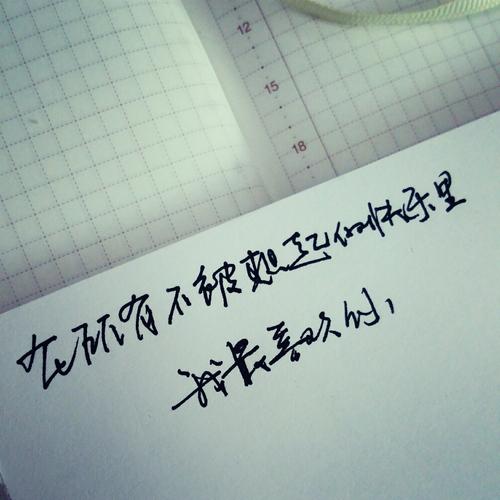 12
15
18
在所有不被想起的快乐里
我最喜欢你,